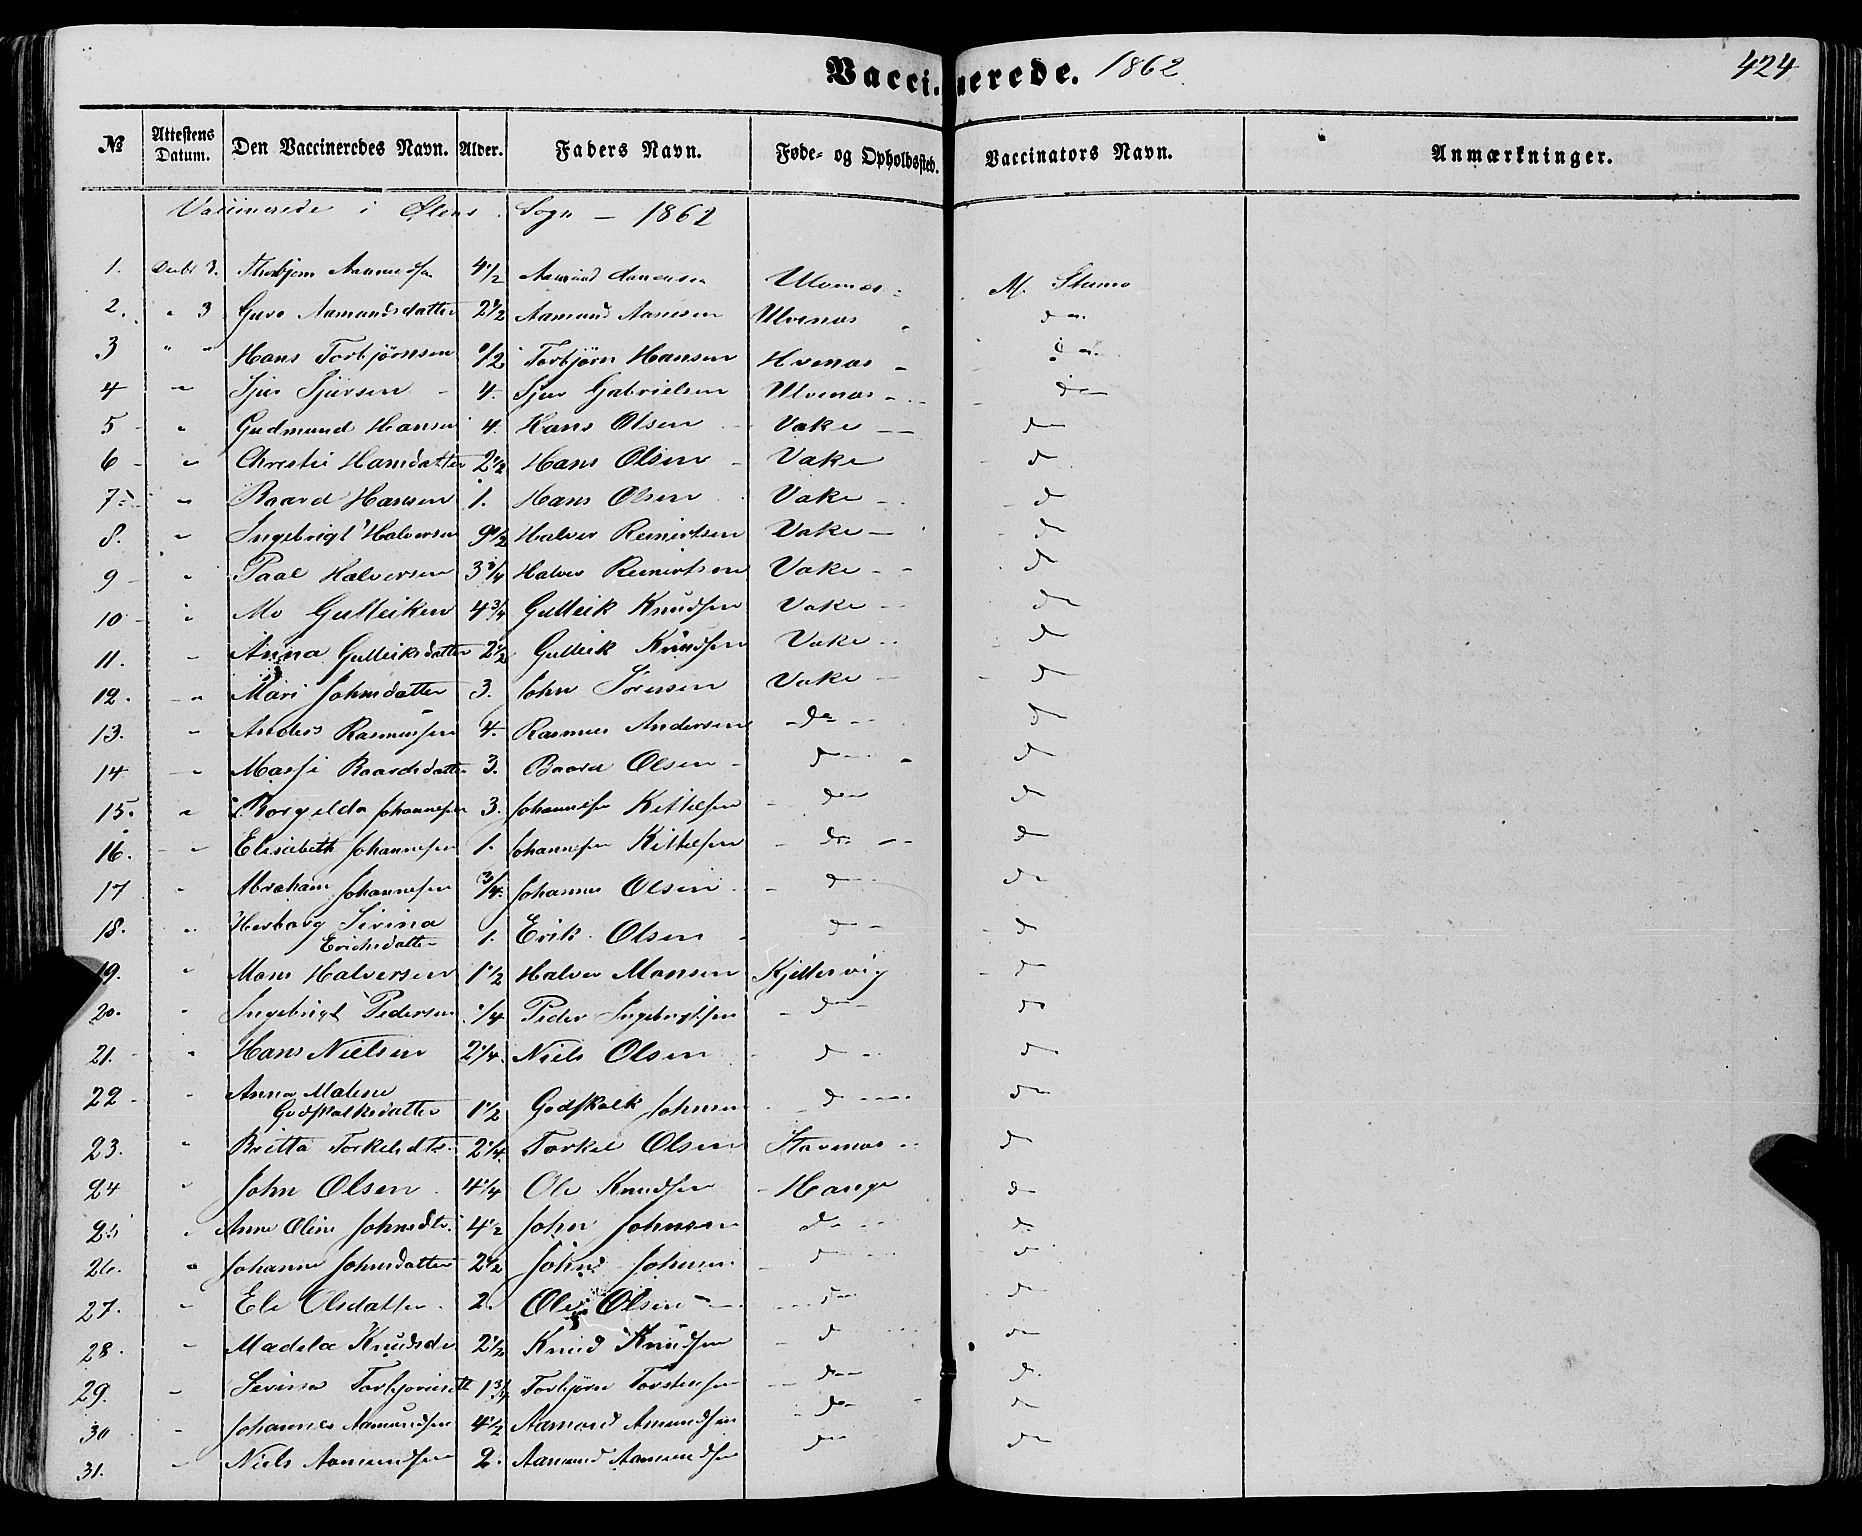 Vaccinerede. 1862 424
№ Attestens Datum. Den Vaccineredes Navn. Alder. Faders Navn. Føde- og Opholdssted. Vaccinators Navn. Anmærkninger.
Vaccinerede i Ølens Sogn — 1862
1. Decbr 3. Thorbjørn Aamundsen 4 1/2 Aamund Ulvenæs M.
2. " 3 Guro Aamundsdatter 2 1/2 Aamund Aanensen Ulvenæs do
3 " " Hans Torbjørnsen 1/2 Torbjørn Hansen Hvenæs do
4 " Sjur Sjursen 4. Sjur Gabrielsen Ulvenæs do
5 " Gudmund Hansen 4. Hans Olsen Vake do
6 " Christi Hansdatter 2 1/2 Hans Olsen Vake d
7 " Baard Hansen 1. Hans Olsen Vake d
8. " Ingebrigt Halversen 9 1/2 Halver Reinertsen Vake d
9 " Paal Halversen 3 3/4 Halver Reinertsen Vake d
10 " Mo Gulleiksen 4 3/4 Gulleik Knudsen Vake do
11. " Anna Gulleiksdatter 2 1/2 Gulleik Knudsen Vake d
12. " Mari Johnsdatter 3. John Vake d
13. " Anders Rasmussen 4. Rasmus Andersen do d
14 " Baardsdatter 3. Baard Olsen do d
15. " Borgilda Johannesen 3. Johannesen Kittelsen do d
16. " Elisabeth Johannesen 1. Johannesen Kittelsen do d
17 " Abraham Johannesen 3/4. Johannes Olsen do do
18. " Herborg Serina
Erichsdatter 1. Erik Olsen do d
19. " Mons Halversen 1 1/2 Halver Monsen Kjellesvig do
20. " Ingebrigt Pedersen 1/4 Peder Ingebrigtsen do do
21. " Hans Nielsen 2 1/4. Niels Olsen do do
22 " Anna Malene
Godskalksdatter 1 1/2 Godskalk Johnsen do do
23. " Britta Torkelsdtr. 2 1/4. Torkel Olsen Stavenæs do
24 " John Olsen 4 1/4 Ole Knudsen Hauge do
25 " Anne Oline Johnsdtr. 4 1/2 John Johnsen do do
26. " Johanne Johnsdatter 2 1/2 John Johnsen do do
27. " Eli Olsdatter 2. Ole Olsen do do
28. " Madela Knudsdr 2 1/2 Knud Knudsen do do
29. " Serina 1 3/4 Torbjørn Torstensen do do
30 " Johannes Aamundsen 4 1/2 Aamund Amundsen do do
31. " Niels Aamundsen 2. Aamund Aamundsen do do